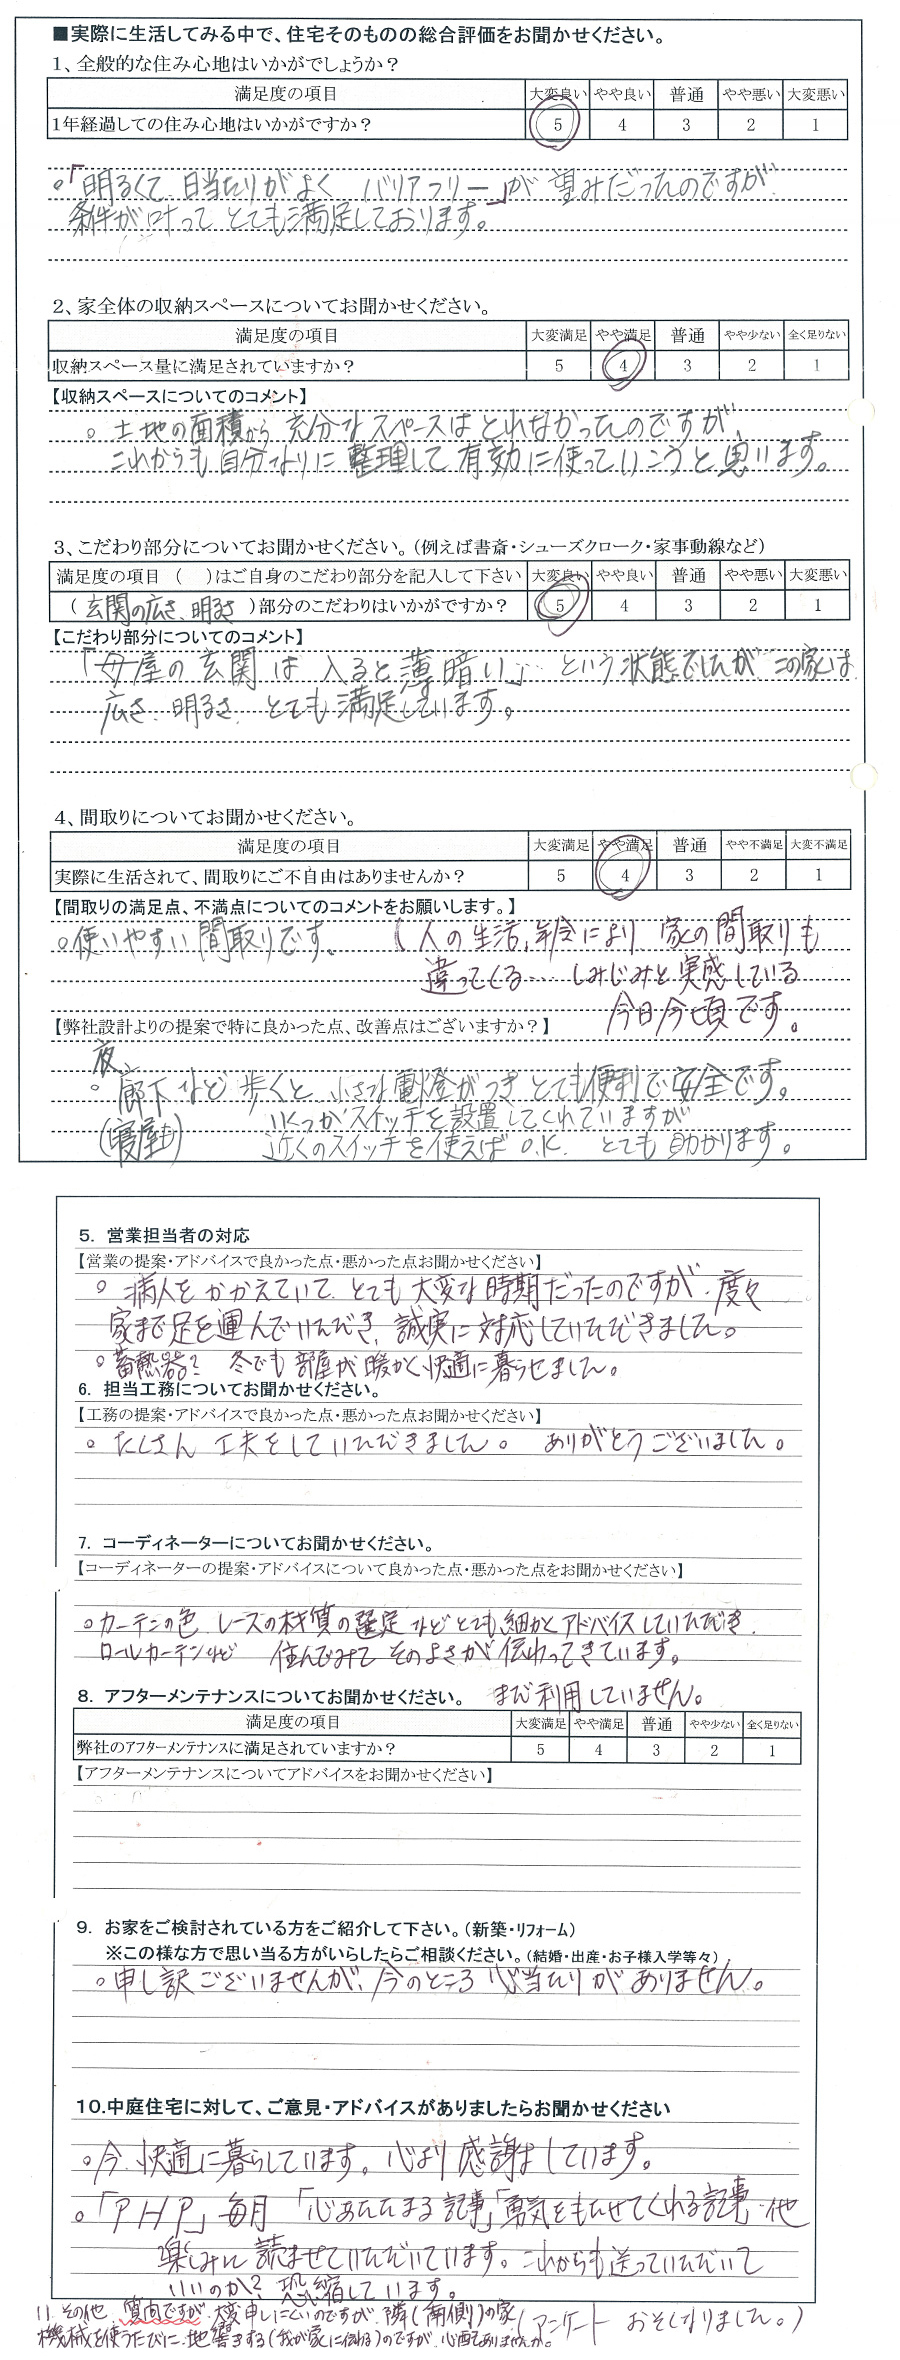 ■実際に生活してみる中で、住宅そのものの総合評価をお聞かせください。
1、全般的な住み心地はいかがでしょうか？
満足度の項目 大変良い やや良い 普通 やや悪い 大変悪い
1年経過しての住み心地はいかがですか？ 5 4 3 2 1
。「明るくて、日当たりがよく バリアフリー」が 望みだったのですが
条件が叶って とても満足しております。
2、家全体の収納スペースについてお聞かせください。
満足度の項目 大変満足 やや満足 普通 やや少ない 全く足りない
収納スペース量に満足されていますか？ 5 4 3 2 1
【収納スペースについてのコメント】
。土地の面積から 充分なスペースはとれなかったのですが、
これからも自分なりに 整理して有効に使っていこうと思います。
3、こだわり部分についてお聞かせください。（例えば書斎・シューズクローク・家事動線など）
満足度の項目（　）はご自身のこだわり部分を記入して下さい 大変良い やや良い 普通 やや悪い 大変悪い
（玄関の広さ、明るさ）部分のこだわりはいかがですか？ 5 4 3 2 1
【こだわり部分についてのコメント】
「母屋の玄関は 入ると薄暗い」… という状態でしたが、この家は
広さ、明るさ、とても満足しています。
4、間取りについてお聞かせください。
満足度の項目 大変満足 やや満足 普通 やや不満足 大変不満足
実際に生活されて、間取りにご不自由はありませんか？ 5 4 3 2 1
【間取りの満足点、不満点についてのコメントをお願いします。】
。使いやすい間取りです。 （人の生活、年令により 家の間取りも
違ってくる…… しみじみと実感している
今日今頃です。
【弊社設計よりの提案で特に良かった点、改善点はございますか？】
夜、
。廊下など歩くと、小さな電燈がつき とても便利で安全です。
（寝室も） いくつかスイッチを設置してくれていますが
近くのスイッチを使えばO.K. とても助かります。
5. 営業担当者の対応
【営業の提案・アドバイスで良かった点・悪かった点お聞かせください】
。病人をかかえていて、とても大変な時期だったのですが、度々
家まで足を運んでいただき、誠実に対応していただきました。
。蓄熱器？ 冬でも部屋が暖かく快適に暮らせました。
6. 担当工務についてお聞かせください。
【工務の提案・アドバイスで良かった点・悪かった点お聞かせください】
。たくさん工夫をしていただきました。 ありがとうございました。
7. コーディネーターについてお聞かせください。
【コーディネーターの提案・アドバイスについて良かった点・悪かった点をお聞かせください】
。カーテンの色、レースの材質の選定などとても細かくアドバイスしていただき、
ロールカーテンなど 住んでみて そのよさが伝わってきています。
8. アフターメンテナンスについてお聞かせください。 まだ利用していません。
満足度の項目 大変満足 やや満足 普通 やや少ない 全く足りない
弊社のアフターメンテナンスに満足されていますか？ 5 4 3 2 1
【アフターメンテナンスについてアドバイスをお聞かせください】
9. お家をご検討されている方をご紹介して下さい。（新築・リフォーム）
※この様な方で思い当る方がいらしたらご相談ください。（結婚・出産・お子様入学等々）
。申し訳ございませんが、今のところ心当たりがありません。
10.中庭住宅に対して、ご意見・アドバイスがありましたらお聞かせください
。今、快適に暮らしています。心より感謝しています。
。「PHP」毎月「心あたたまる記事」「勇気をもたせてくれる記事、他
楽しみに読ませていただいています。これからも送っていただいて
いいのか？ 恐縮しています。
11. その他 質問ですが、大変申しにくいのですが、隣（南側）の家、（アンケート おそくなりました。）
機械を使うたびに、地響きする（我が家に伝わる）のですが、心配ありませんか。